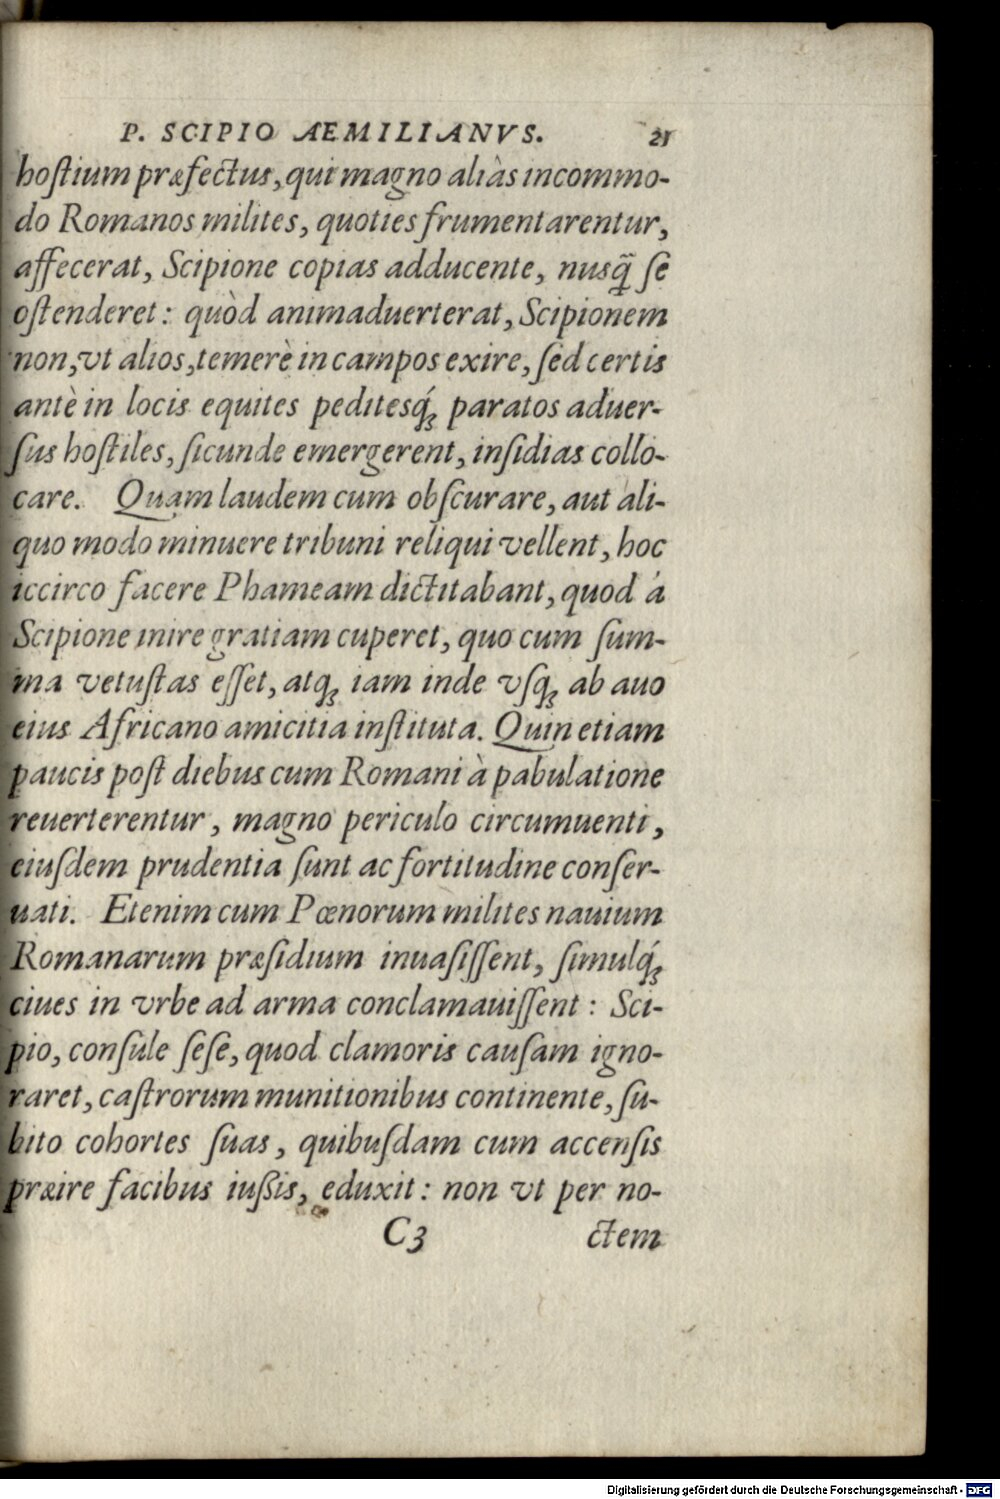 P. SCIPIO AEMILIANVS. 21
hoſtium præfectus, qui magno aliàs incommo-
do Romanos milites, quoties frumentarentur,
affecerat, Scipione copias adducente, nusq̃ ſe
oſtenderet: quòd animaduerterat, Scipionem
non, vt alios, temerè in campos exire, ſed certis
antè in locis equites peditesq́; paratos aduer-
ſus hoſtiles, ſicunde emergerent, inſidias collo-
care. Quam laudem cum obſcurare, aut ali-
quo modo minuere tribuni reliqui vellent, hoc
iccirco facere Phameam dictitabant, quod á
Scipione inire gratiam cuperet, quo cum ſum-
ma vetuſtas eſſet, atq; iam inde vſq; ab auo
eius Africano amicitia inſtituta. Quin etiam
paucis poſt diebus cum Romani à pabulatione
reuerterentur, magno periculo circumuenti,
eiuſdem prudentia ſunt ac fortitudine conſer-
uati. Etenim cum Pœnorum milites nauium
Romanarum præſidium inuaſiſſent, ſimulq́;
ciues in vrbe ad arma conclamauiſſent: Sci-
pio, conſule ſeſe, quod clamoris cauſam igno-
raret, caſtrorum munitionibus continente, ſu-
bito cohortes ſuas, quibuſdam cum accenſis
præire facibus iußis, eduxit: non vt per no-
C3 ctem
Digitalisierung gefördert durch die Deutsche Forschungsgemeinschaft - DFG